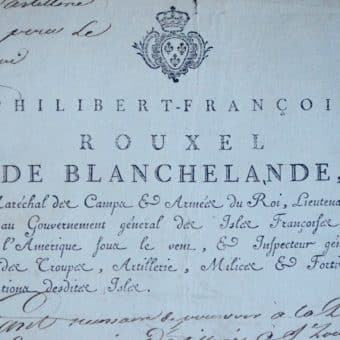 artillerie
pour le
HILIBERT-FRANÇOI
ROUXEL
DE BLANCHELANDE,
Maréchal des Camps & Armées du Roi, Lieutena
au Gouvernement général des Isles Françoises
l'Amerique sous le vent, & Inspecteur gén
des Troupes, Artillerie, Milices & Forti
tions desdites Isles.
nécessaire de pourvoir à la